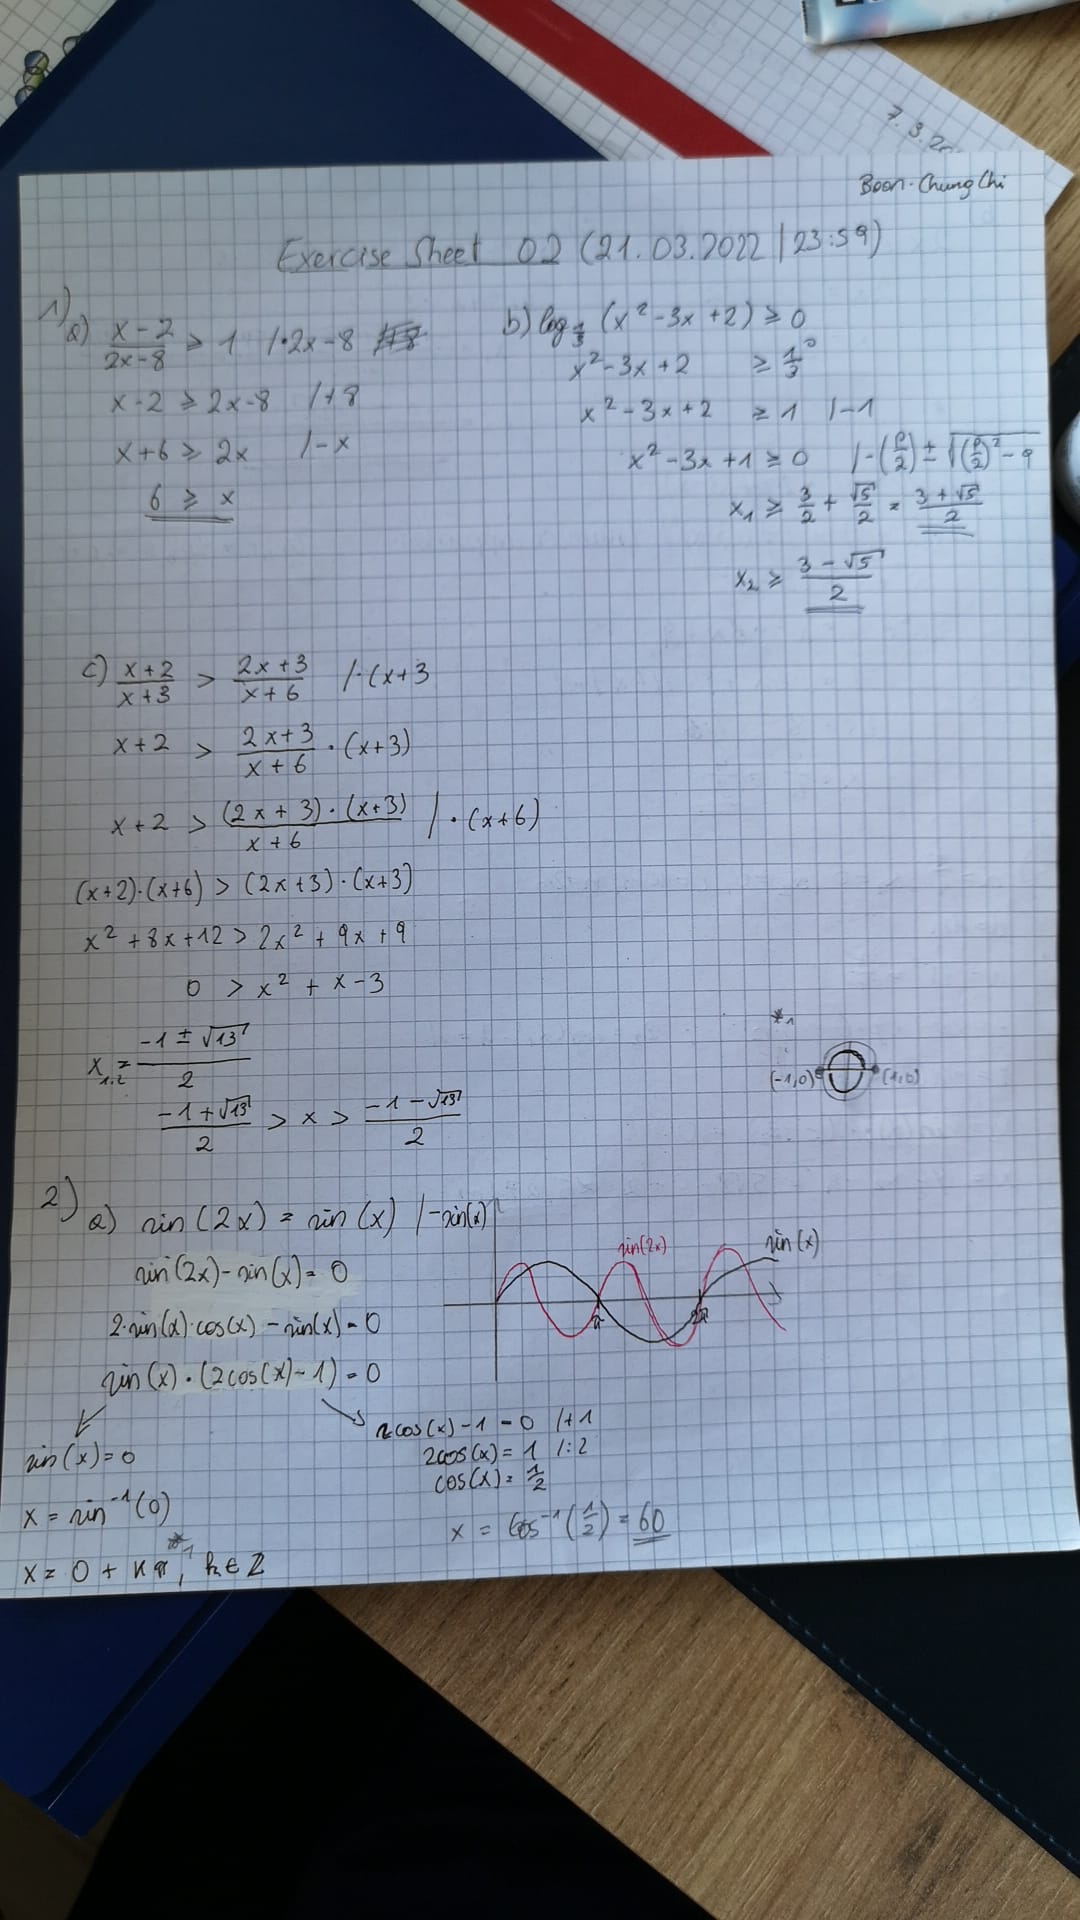 7.3.20
Boon-Chung Chi
Exercise Sheet 02 (21.03.2022 | 23:59)
1)
a) (x-2)/(2x-8) ≥ 1 /·2x-8
x-2 ≥ 2x-8 /+8
x+6 ≥ 2x /-x
6 ≥ x
b) log_{1/3} (x²-3x+2) ≥ 0
x²-3x+2 ≥ 1/3⁰
x²-3x+2 ≥ 1 /-1
x²-3x+1 ≥ 0 /-(p/2) ± √((p/2)²-q
x₁ ≥ 3/2 + √5/2 = (3+√5)/2
x₂ ≥ (3-√5)/2
c) (x+2)/(x+3) > (2x+3)/(x+6) /·(x+3
x+2 > (2x+3)/(x+6) · (x+3)
x+2 > ((2x+3)·(x+3))/(x+6) /·(x+6)
(x+2)·(x+6) > (2x+3)·(x+3)
x²+8x+12 > 2x²+9x+9
0 > x²+x-3
x₁,₂ = (-1±√13)/2
(-1+√13)/2 > x > (-1-√13)/2
*₁
(-1,0) (1,0)
2)
a) sin(2x) = sin(x) /-sin(x)
sin(2x)-sin(x) = 0
2·sin(x)·cos(x) - sin(x) = 0
sin(x)·(2cos(x)-1) = 0
sin(2x) sin(x)
π 2π
sin(x) = 0
x = sin⁻¹(0)
x = 0 + kπ*₁, k∈Z
2cos(x)-1 = 0 /+1
2cos(x) = 1 /:2
cos(x) = 1/2
x = cos⁻¹(1/2) = 60